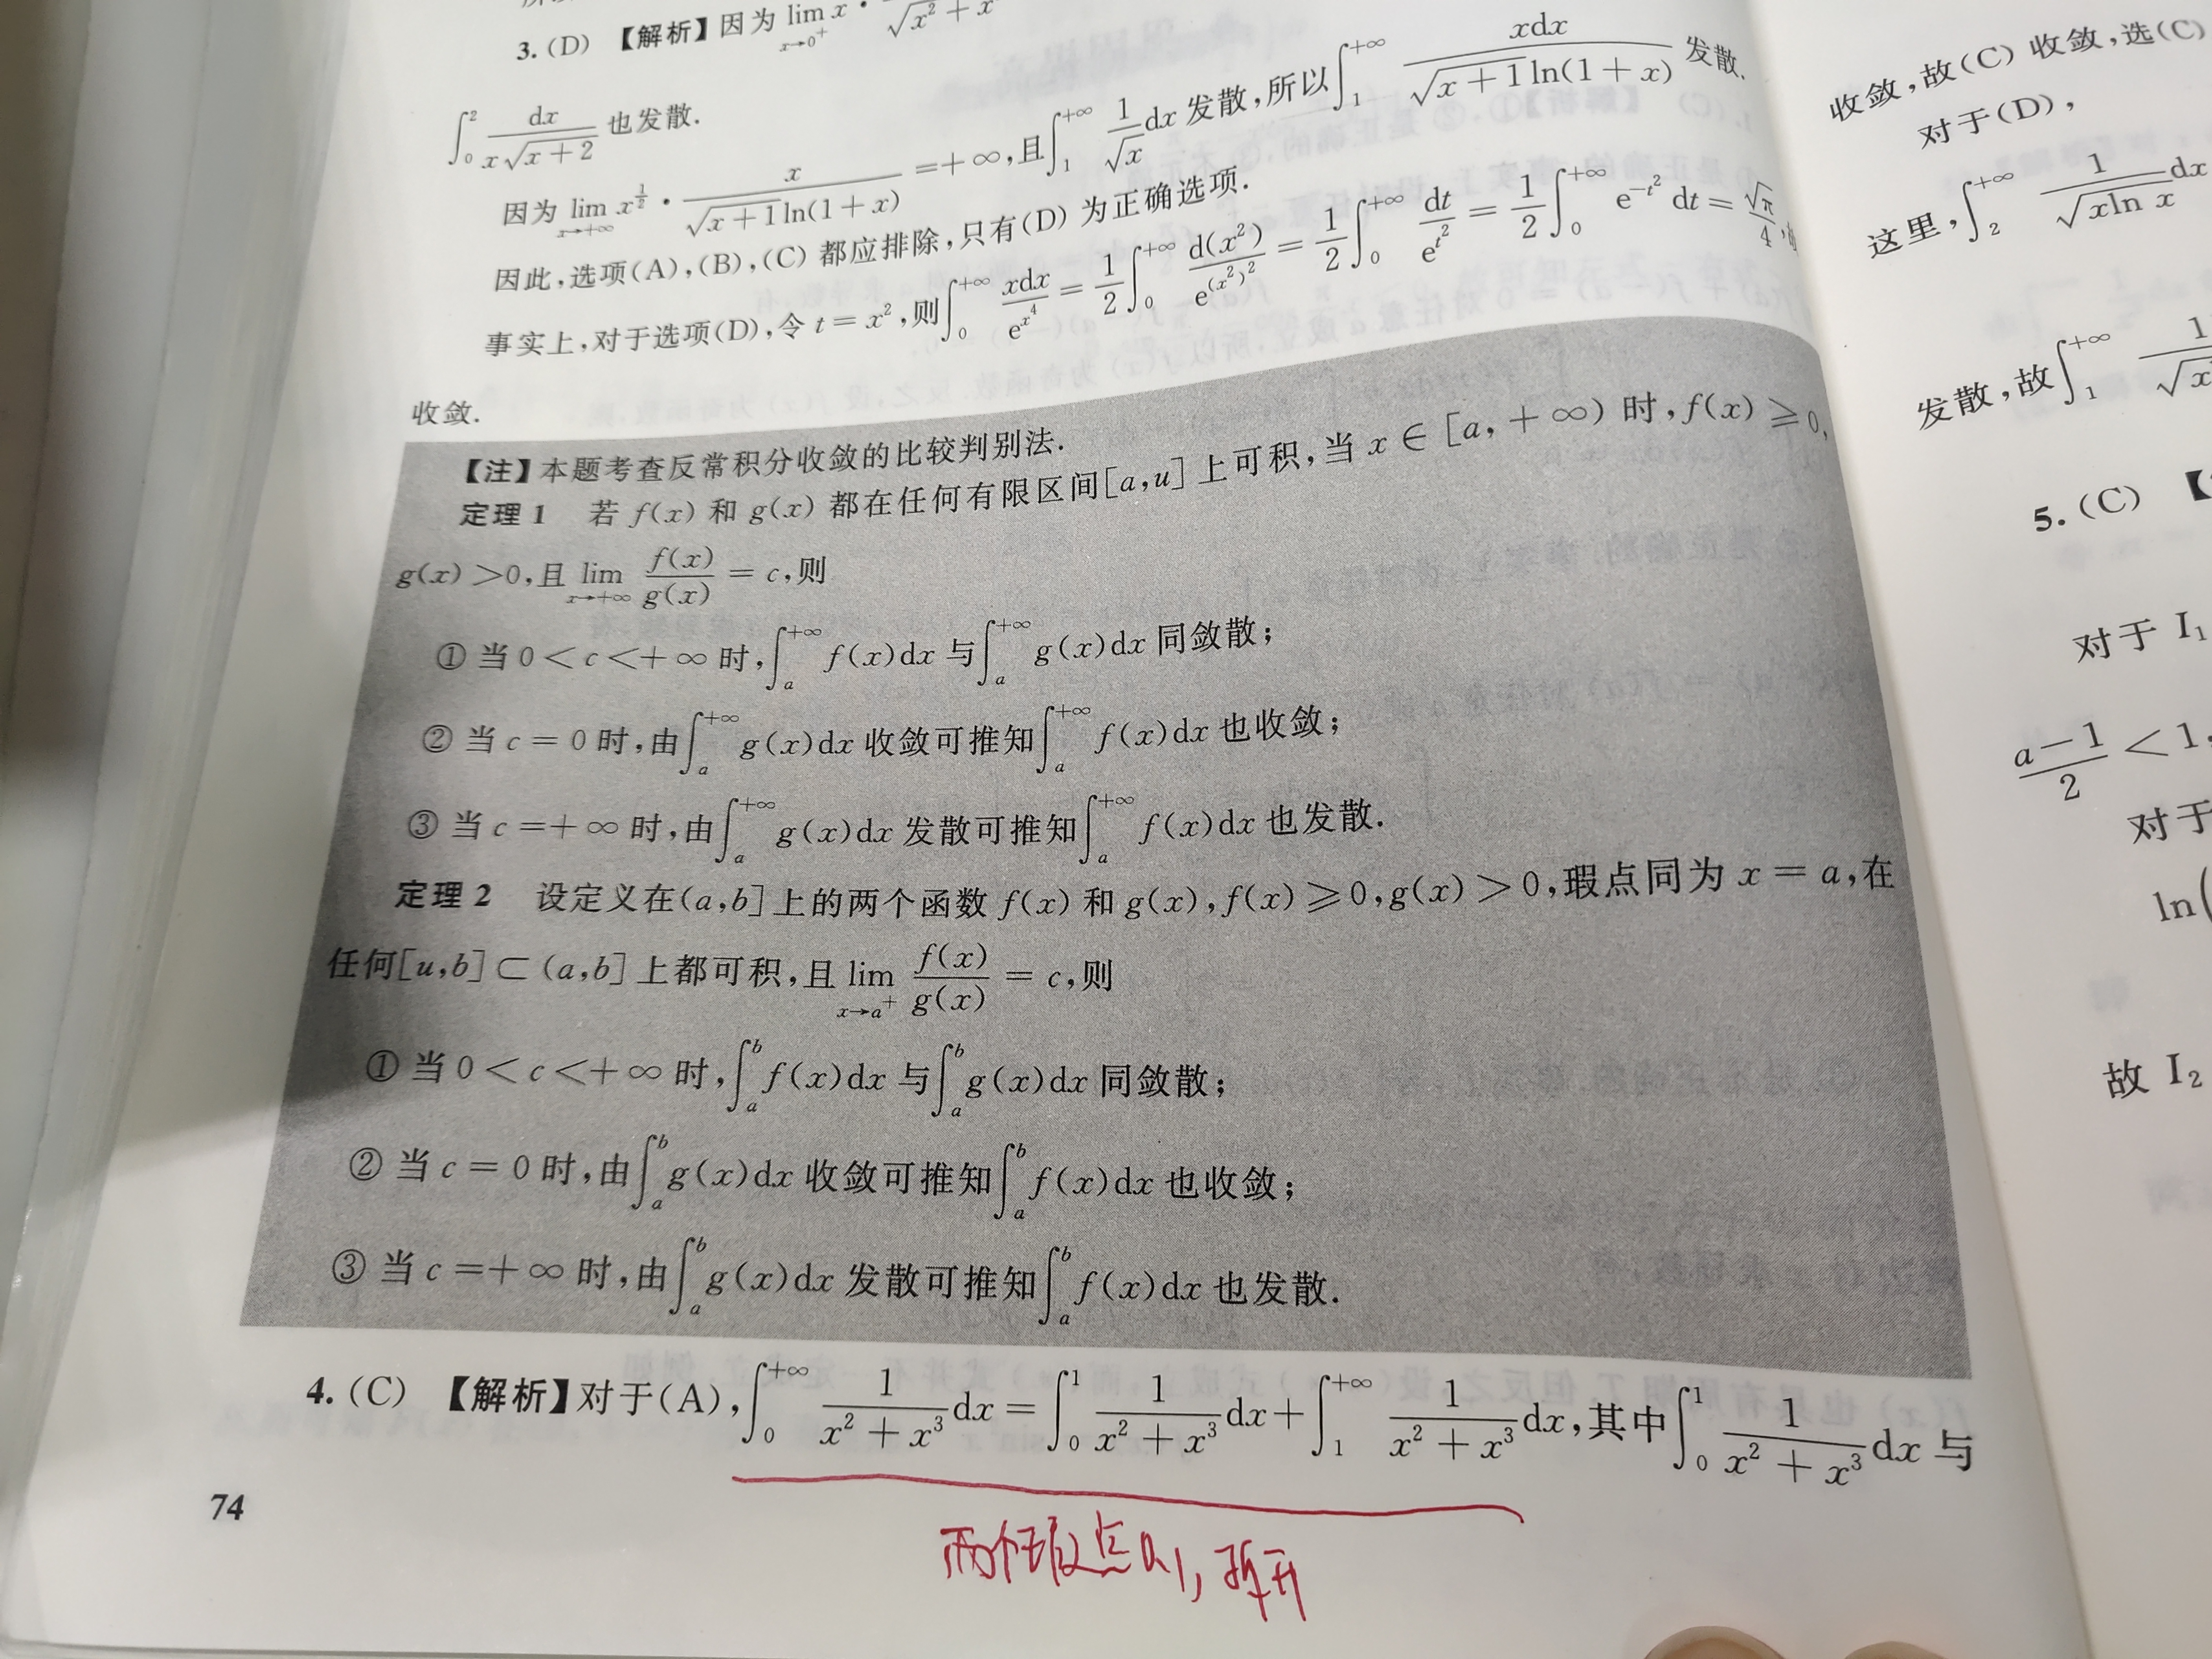 3. (D) 【解析】因为 lim x→0⁺ x · √(x² + x
∫₀² dx/(x√(x+2)) 也发散.
因为 lim x→+∞ x^(1/2) · x/(√(x+1) ln(1+x)) = +∞,且∫₁^(+∞) 1/√x dx 发散,所以∫₁^(+∞) xdx/(√(x+1) ln(1+x)) 发散.
因此,选项(A),(B),(C) 都应排除,只有(D) 为正确选项.
事实上,对于选项(D),令 t = x²,则∫₀^(+∞) xdx/e^(x⁴) = 1/2 ∫₀^(+∞) d(x²)/e^((x²)²) = 1/2 ∫₀^(+∞) dt/e^(t²) = 1/2 ∫₀^(+∞) e^(-t²) dt = √π/4,
收敛.
【注】本题考查反常积分收敛的比较判别法.
定理 1 若 f(x) 和 g(x) 都在任何有限区间[a,u] 上可积,当 x ∈ [a,+∞) 时,f(x) ≥ 0,
g(x) >0,且 lim x→+∞ f(x)/g(x) = c,则
① 当 0 < c < +∞ 时,∫ₐ^(+∞) f(x)dx 与∫ₐ^(+∞) g(x)dx 同敛散;
② 当 c = 0 时,由∫ₐ^(+∞) g(x)dx 收敛可推知∫ₐ^(+∞) f(x)dx 也收敛;
③ 当 c =+∞ 时,由∫ₐ^(+∞) g(x)dx 发散可推知∫ₐ^(+∞) f(x)dx 也发散.
定理 2 设定义在(a,b] 上的两个函数 f(x) 和 g(x),f(x) ≥ 0,g(x) > 0,瑕点同为 x = a,在
任何[u,b] ⊂ (a,b] 上都可积,且 lim x→a⁺ f(x)/g(x) = c,则
① 当 0 < c < +∞ 时,∫ₐᵇ f(x)dx 与∫ₐᵇ g(x)dx 同敛散;
② 当 c = 0 时,由∫ₐᵇ g(x)dx 收敛可推知∫ₐᵇ f(x)dx 也收敛;
③ 当 c =+∞ 时,由∫ₐᵇ g(x)dx 发散可推知∫ₐᵇ f(x)dx 也发散.
4. (C) 【解析】对于(A),∫₀^(+∞) 1/(x² + x³) dx = ∫₀¹ 1/(x² + x³) dx + ∫₁^(+∞) 1/(x² + x³) dx,其中∫₀¹ 1/(x² + x³) dx 与
74
两个瑕点 0,1,拆开
收敛,故(C) 收敛,选(C)
对于(D),
这里,∫₂^(+∞) 1/(√x ln x) dx
发散,故∫₁^(+∞) 1/√x
5. (C) 【
对于 I₁
(a−1)/2 < 1,
对于
ln(
故 I₂